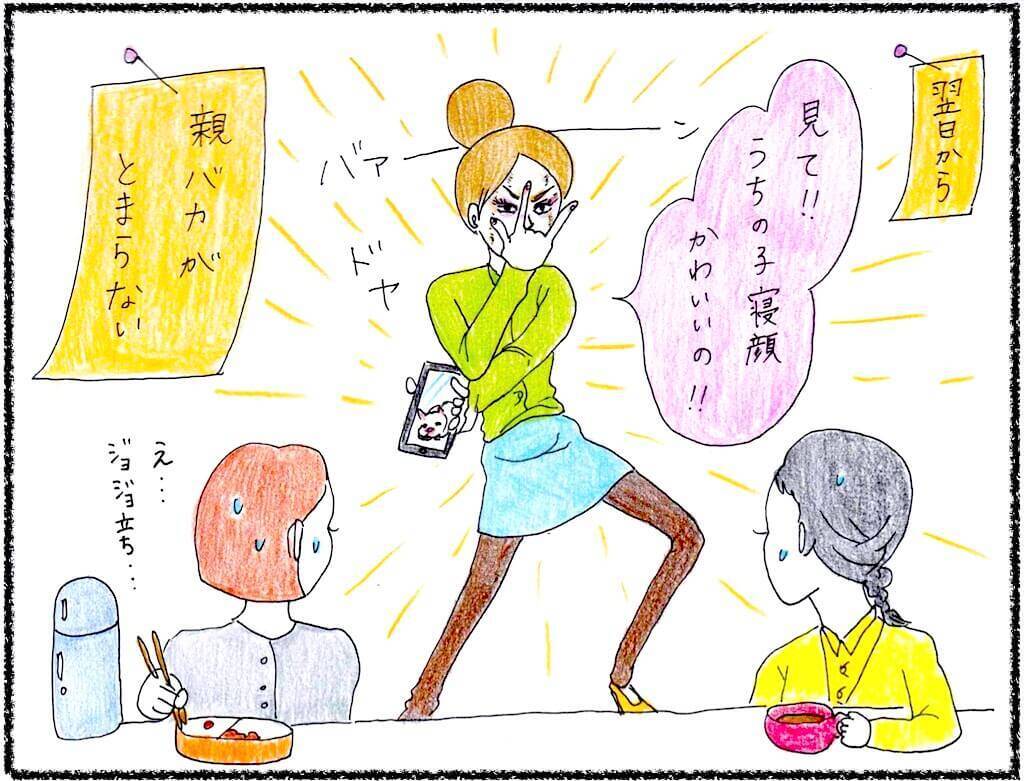 翌日から
見て!!
うちの子寝顔
かわいいの!!
バァーーン
ドヤ
親バカが
とまらない
え…
ジョジョ立ち…